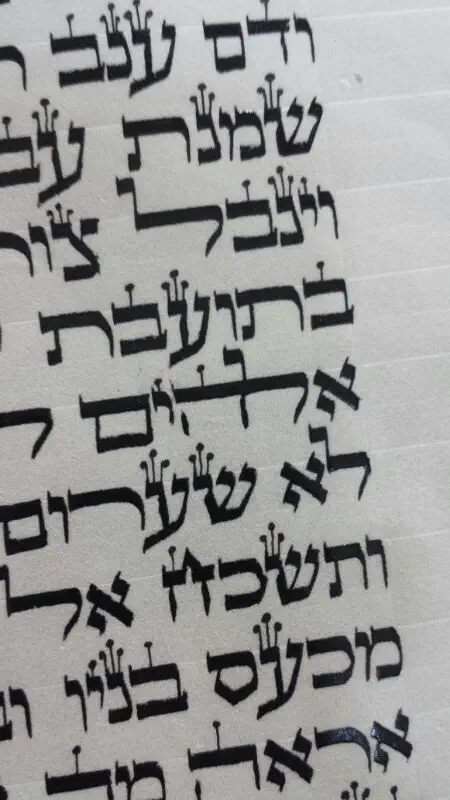 ודם ענב
שמנת עב
וינבל צור
בתועבת
אלהים ל
לא שערום
ותשכח אל
מכעס בניו וב
אראה מה